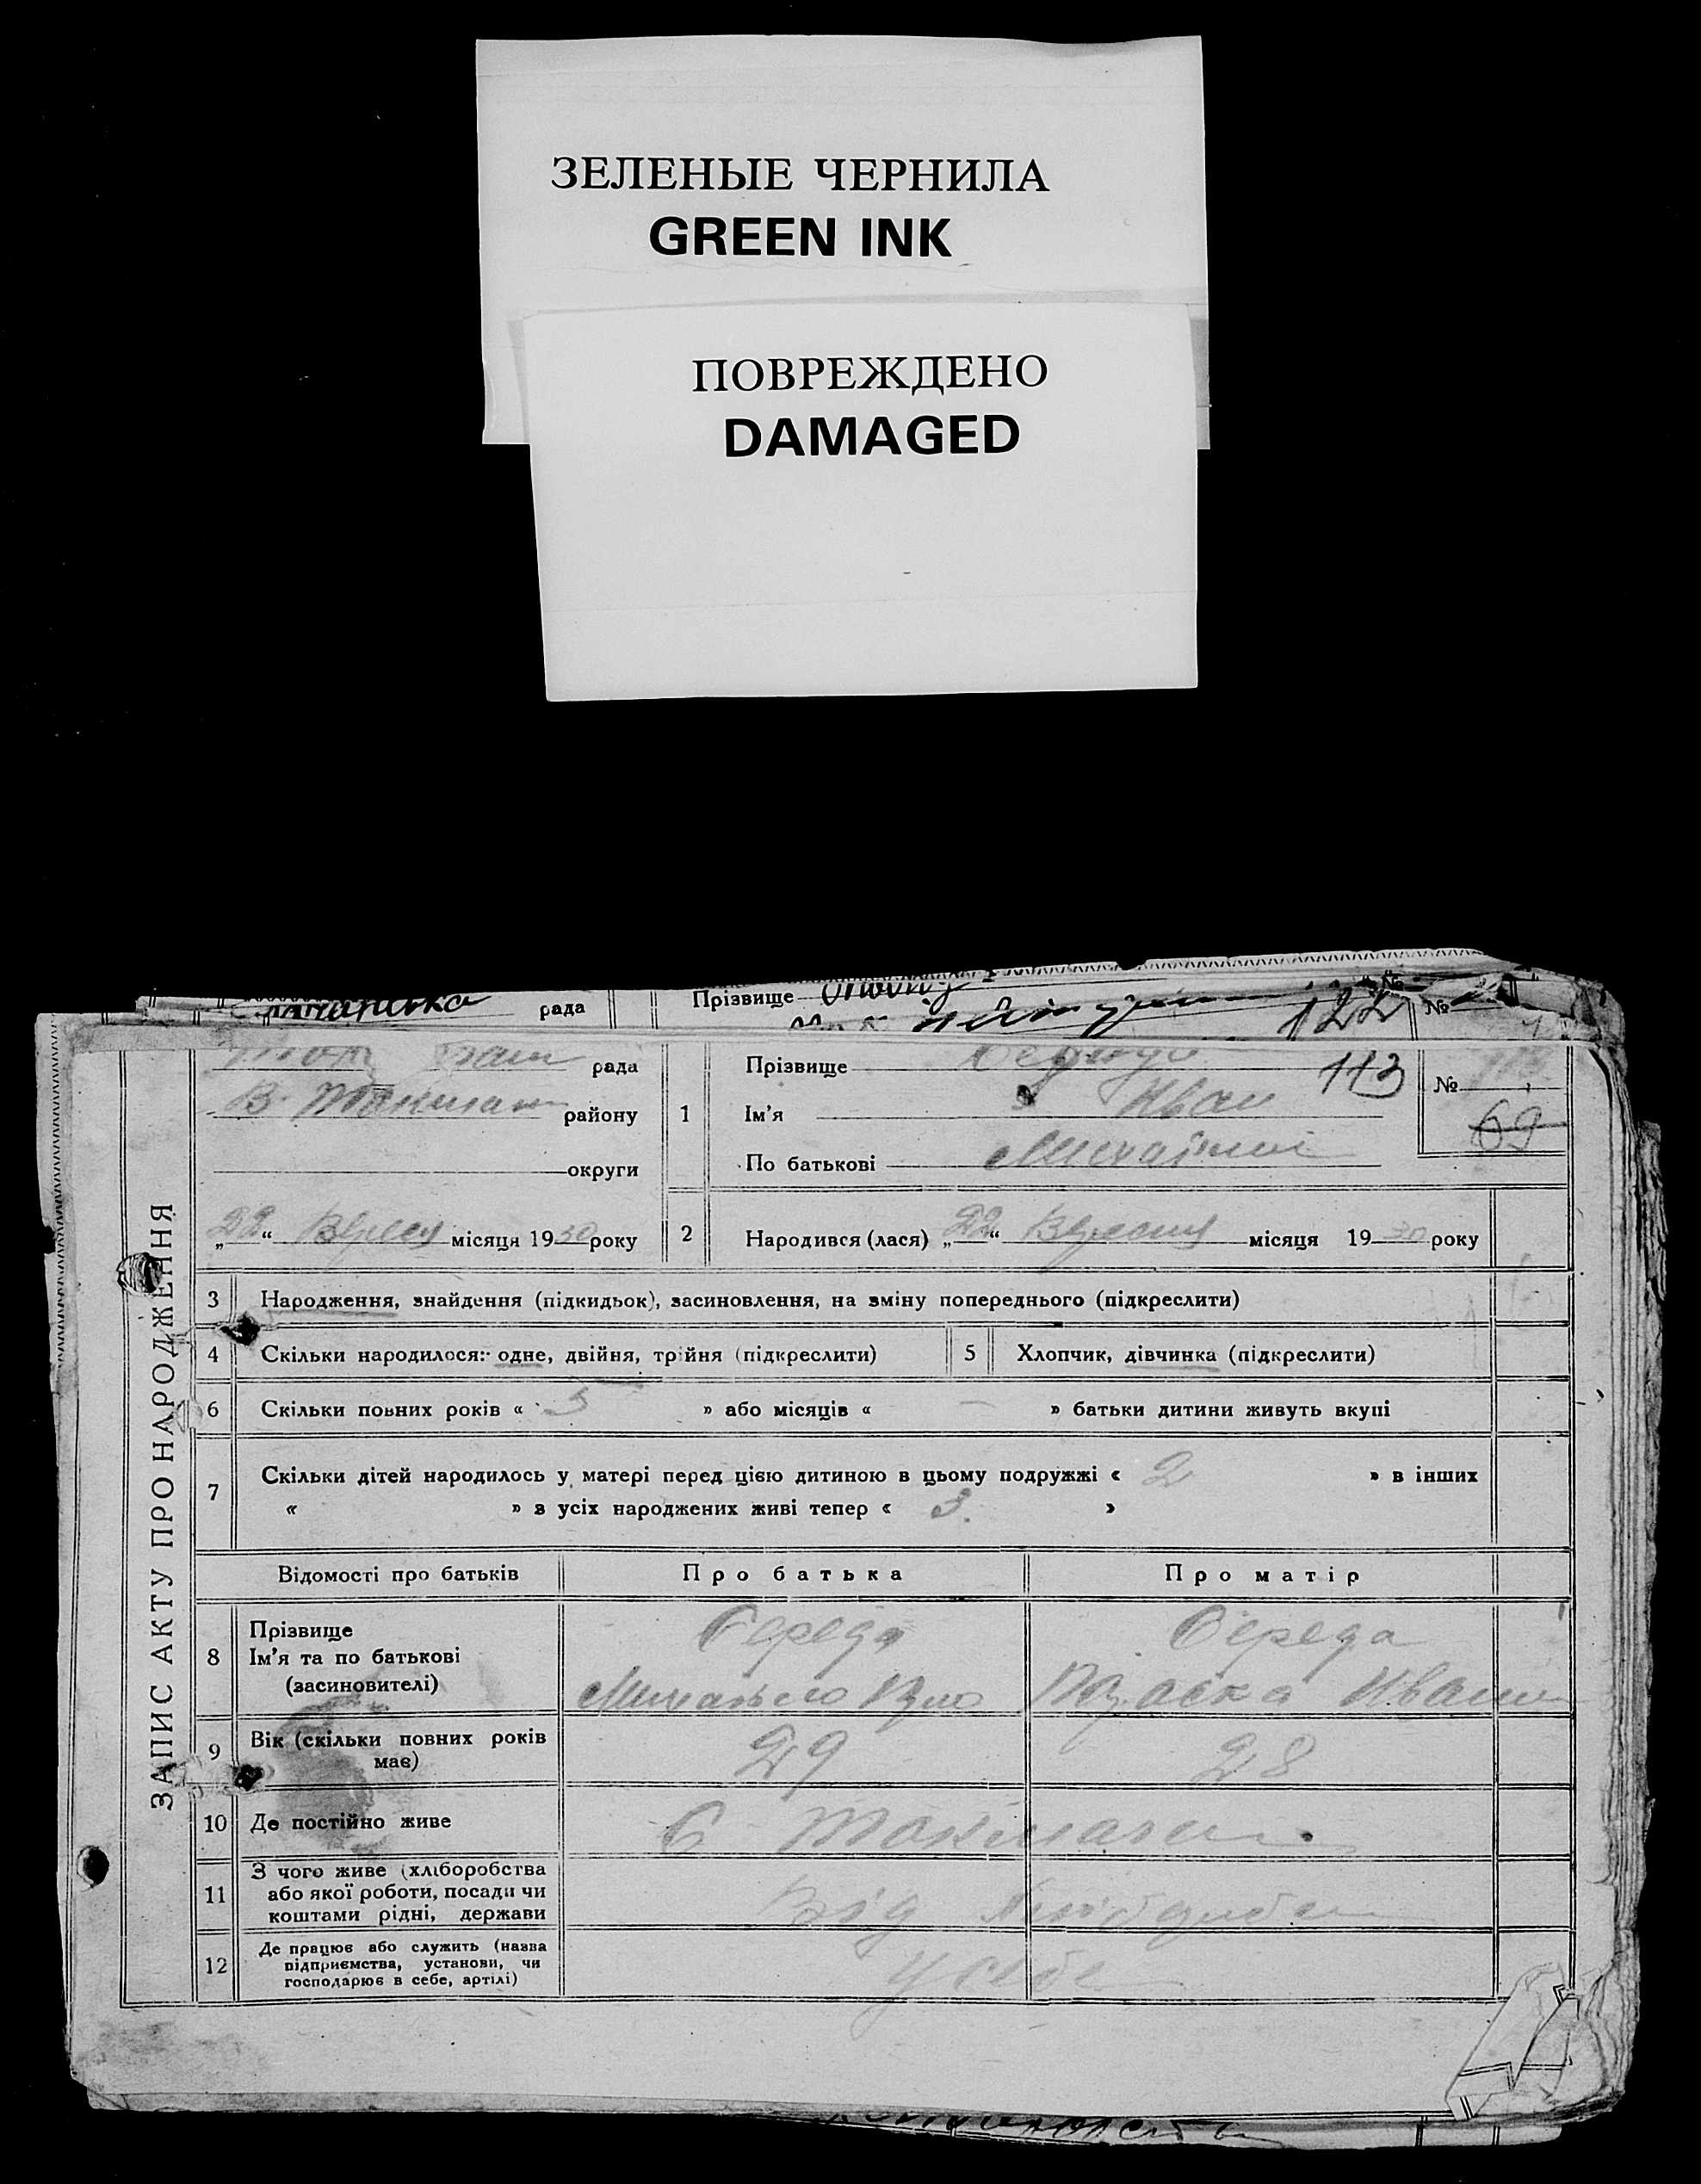 ЗЕЛЕНЫЕ ЧЕРНИЛА
GREEN INK
ПОВРЕЖДЕНО
DAMAGED
рада
Прізвище
122
№
ЗАПИС АКТУ ПРО НАРОДЖЕННЯ
рада
В. Токмак району
округи
„22“ Вересня місяця 1930 року
1
Прізвище Середа
Ім'я Иван
По батькові
113
№
69
2 Народився (лася) „22“ Вересня місяця 1930 року
3 Народження, знайдення (підкидьок), засиновлення, на зміну попереднього (підкреслити)
4 Скільки народилося: одне, двійня, трійня (підкреслити) 5 Хлопчик, дівчинка (підкреслити)
6 Скільки повних років « 5 » або місяців « — » батьки дитини живуть вкупі
7 Скільки дітей народилось у матері перед цією дитиною в цьому подружжі « 2 » в інших
« » з усіх народжених живі тепер « 3. »
Відомості про батьків Про батька Про матір
8 Прізвище
Ім'я та по батькові
(засиновителі)
Середа Середа
Михайло Иван
9 Вік (скільки повних років
має)
29 28
10 Де постійно живе
С Токмачах
11 З чого живе (хліборобства
або якої роботи, посади чи
коштами рідні, держави
Від
12 Де працює або служить (назва
підприємства, установи, чи
господарює в себе, артілі)
У себе